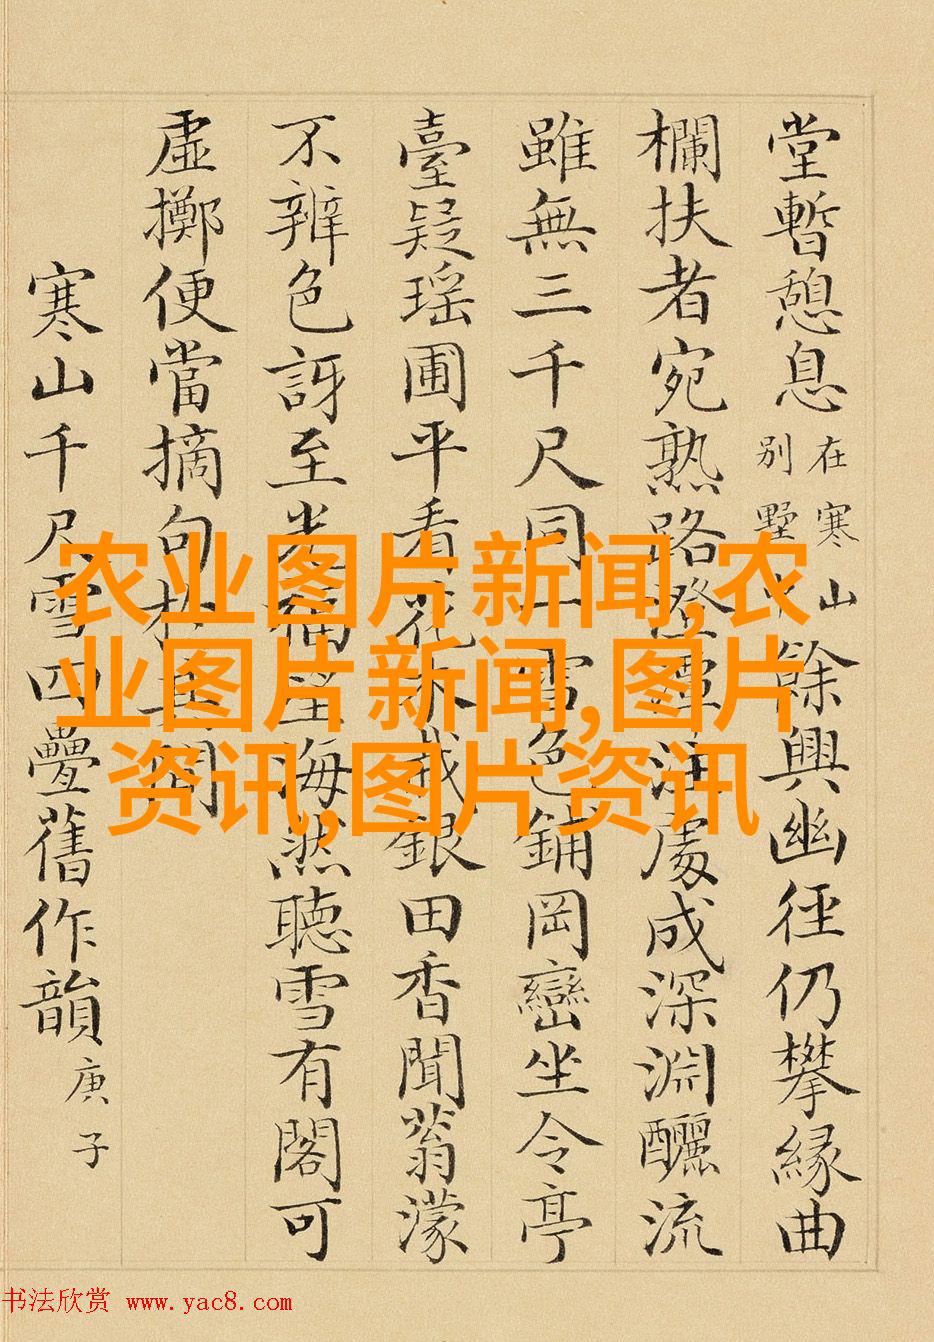 堂暫憩息
在寒山
別墅
餘興幽徑仍攀緣曲
欄扶者宛熟路澄潭注處成深淵釃流
雖無三千尺同一雪色鋪岡巒坐令亭
臺疑瑤圃平看花銀田香聞蓊濛
不辨色訝至光海然聽雪有閣可
虛擲便當摘句於其間
寒山千尺雪四疊舊作韻
庚子
农业图片新闻,农
业图片新闻,图片
资讯,图片资讯
书法欣赏 www.yac8.com